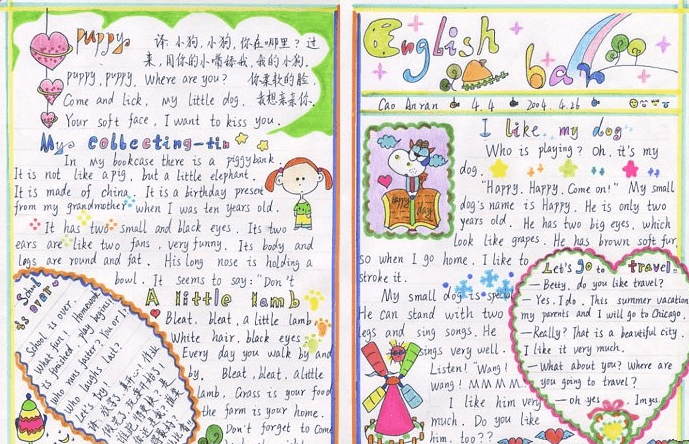 puppy
译: 小狗, 小狗, 你在哪里? 过
来, 用你的小嘴舔我, 我的小狗,
puppy, puppy, Where are you? 你柔软的脸,
Come and lick, my little dog. 我想亲亲你.
Your soft face, I want to kiss you.
My collecting-tin
In my bookcase there is a piggybank.
It is not like a pig, but a little elephant.
It is made of china. It is a birthday present
from my grandmother when I was ten years old.
It has two small and black eyes. Its two
ears are like two fans, very funny. Its body and
legs are round and fat. His long nose is holding a
bowl. It seems to say: "Don't
School
is over
School is over.
What fun!
is finished play begins
Who runs faster? You or I?
Who laugh last?
Let's try
A little lamb
Bleat, bleat, a little lamb
White hair, black eyes.
Every day you walk by and
by. Bleat, bleat, a little
lamb, Grass is your food
the farm is your home.
Don't forget to come
English
bar
Cao Anran 4.4 2004.4.26
I like my dog
Who is playing? Oh, it's my
dog.
"Happy, Happy, Come on!" My small
dog's name is Happy. He is only two
years old. He has two big eyes, which
look like grapes. He has brown soft fur,
so when I go home, I like to
stroke it.
Happy day
My small dog is special
He can stand with two
legs and sing songs. He
sings very well.
Listen! "Wang!
wang! MMMM
I like him very
much. Do you like
him, too??
Let's go to travel.
— Betty, do you like travel?
— Yes, I do. This summer vacation
my parents and I will go to Chicago.
— Really? That is a beautiful city.
I like it very much.
— What about you? Where are
you going to travel?
— oh yes